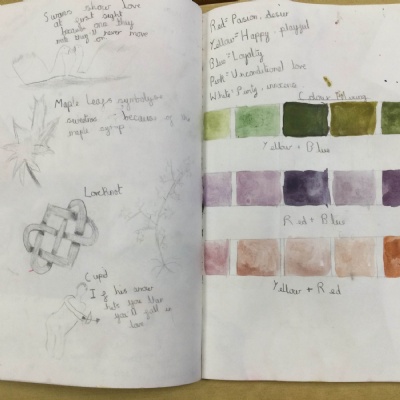 Swans show love
at first sight
because once they
met they'll never move
on
Maple Leafs symbolise
sweetness - because of the
maple syrup
Love Knot
Cupid
If his arrow
hits you then
you'll fall in
love
Red = Passion, desire
Yellow = Happy, playful
Blue = Loyalty
Pink = Unconditional love
White = Purity, innocence
Colour Mixing
Yellow + Blue
Red + Blue
Yellow + Red